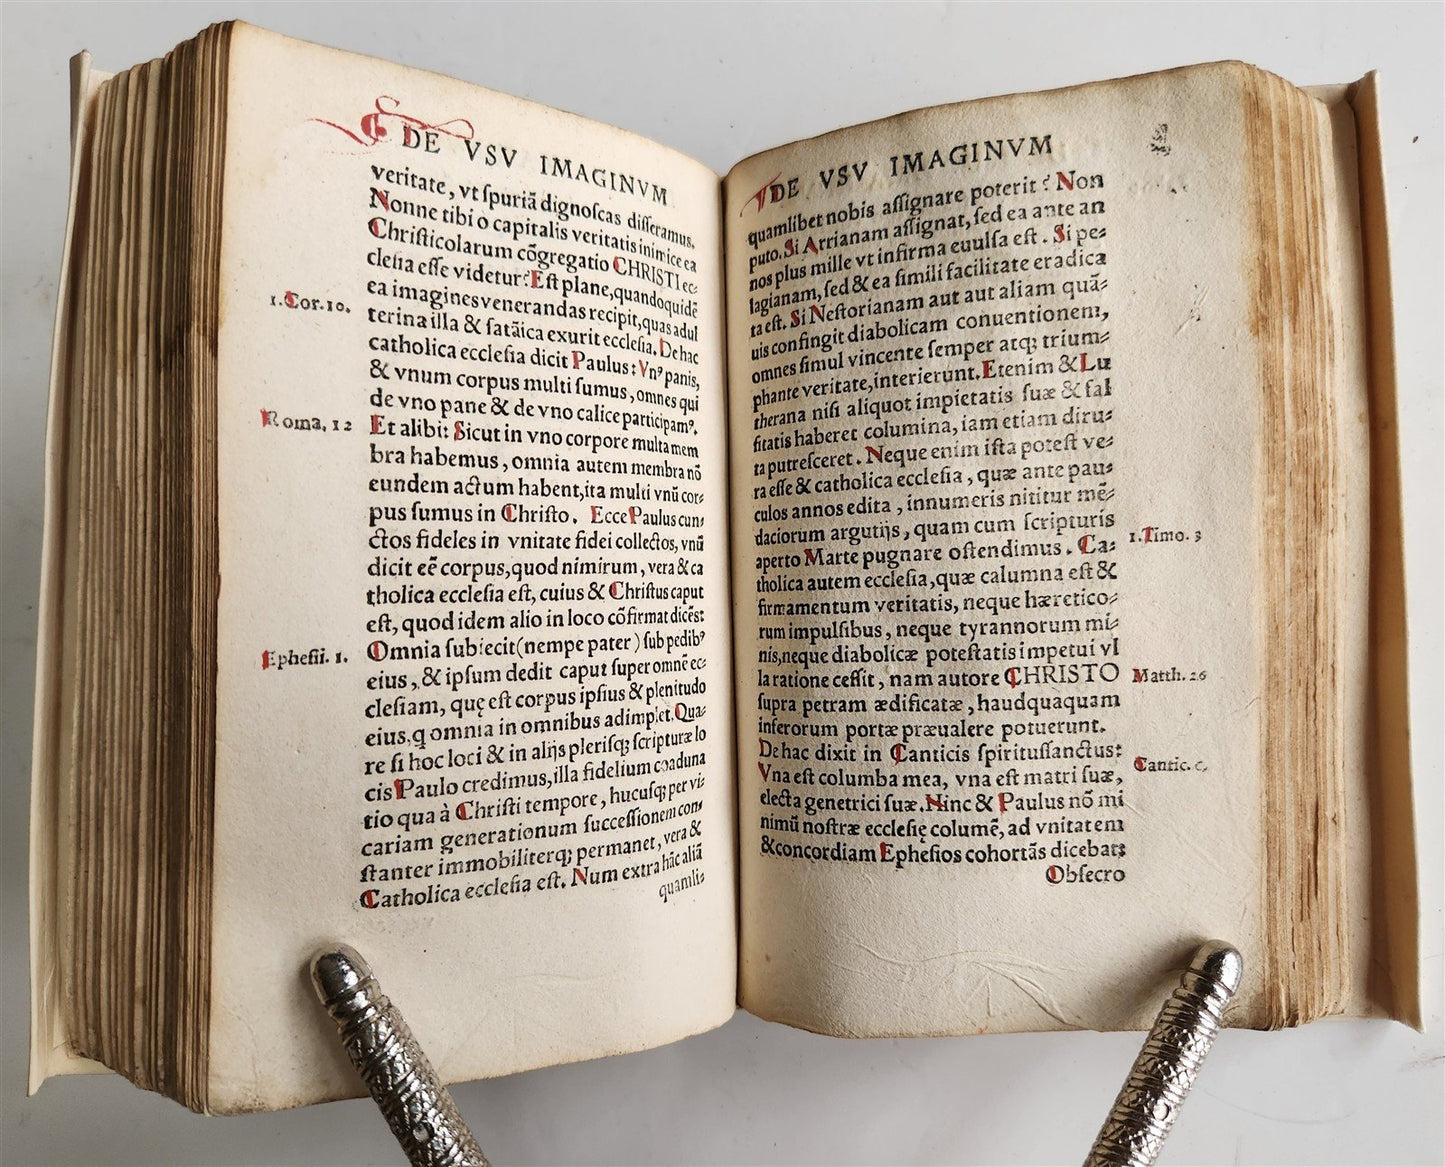 DE VSV IMAGINVM
veritate, vt spuriā dignoscas disseramus.
Nonne tibi o capitalis veritatis inimice ea
Christicolarum cōgregatio CHRISTI ec-
clesia esse videtur? Est plane, quandoquidē
ea imagines venerandas recipit, quas adul
terina illa & fatāica exurit ecclesia. De hac
1.Cor.10.
catholica ecclesia dicit Paulus: Vnꝰ panis,
& vnum corpus multi sumus, omnes qui
de vno pane & de vno calice participamꝰ.
Roma. 12
Et alibi: Sicut in vno corpore multa mem
bra habemus, omnia autem membra nō
eundem actum habent, ita multi vnū cor-
pus sumus in Christo. Ecce Paulus cun-
ctos fideles in vnitate fidei collectos, vnū
dicit eē corpus, quod nimirum, vera & ca
tholica ecclesia est, cuius & Christus caput
est, quod idem alio in loco cōfirmat dicēs:
Ephesii. 1.
Omnia subiecit (nempe pater) sub pedibꝰ
eius, & ipsum dedit caput super omnē ec-
clesiam, quę est corpus ipsius & plenitudo
eius, q omnia in omnibus adimplet. Qua-
re si hoc loci & in alijs plerisq; scripturæ lo
cis Paulo credimus, illa fidelium coaduna
tio qua à Christi tempore, hucusq; per vi-
cariam generationum successionem con-
stanter immobiliterq; permanet, vera &
Catholica ecclesia est. Num extra hāc aliā
quamli-
DE VSV IMAGINVM
quamlibet nobis assignare poterit? Non
puto. Si Arrianam assignat, sed ea ante an
nos plus mille vt infirma euulsa est. Si pe-
lagianam, sed & ea simili facilitate eradica
ta est. Si Nestorianam aut aut aliam quā-
uis confingit diabolicam conuentionem,
omnes simul vincente semper atq; trium-
phante veritate, interierunt. Etenim & Lu
therana nisi aliquot impietatis suæ & fal
sitatis haberet columina, iam etiam diru-
ta putresceret. Neque enim ista potest ve-
ra esse & catholica ecclesia, quæ ante pau-
culos annos edita, innumeris nititur mē-
daciorum argutijs, quam cum scripturis
aperto Marte pugnare ostendimus. Ca-
1.Timo. 3
tholica autem ecclesia, quæ calumna est &
firmamentum veritatis, neque hæretico-
rum impulsibus, neque tyrannorum mi-
nis, neque diabolicæ potestatis impetui vl
la ratione cessit, nam autore CHRISTO
Matth. 26
supra petram ædificatæ, haudquaquam
inferorum portæ præualere potuerunt.
De hac dixit in Canticis spiritussanctus:
Cantic.
Vna est columba mea, vna est matri suæ,
electa genetrici suæ. Ninc & Paulus nō mi
nimū nostræ ecclesię columē, ad vnitatem
& concordiam Ephesios cohortās dicebat:
Obsecro